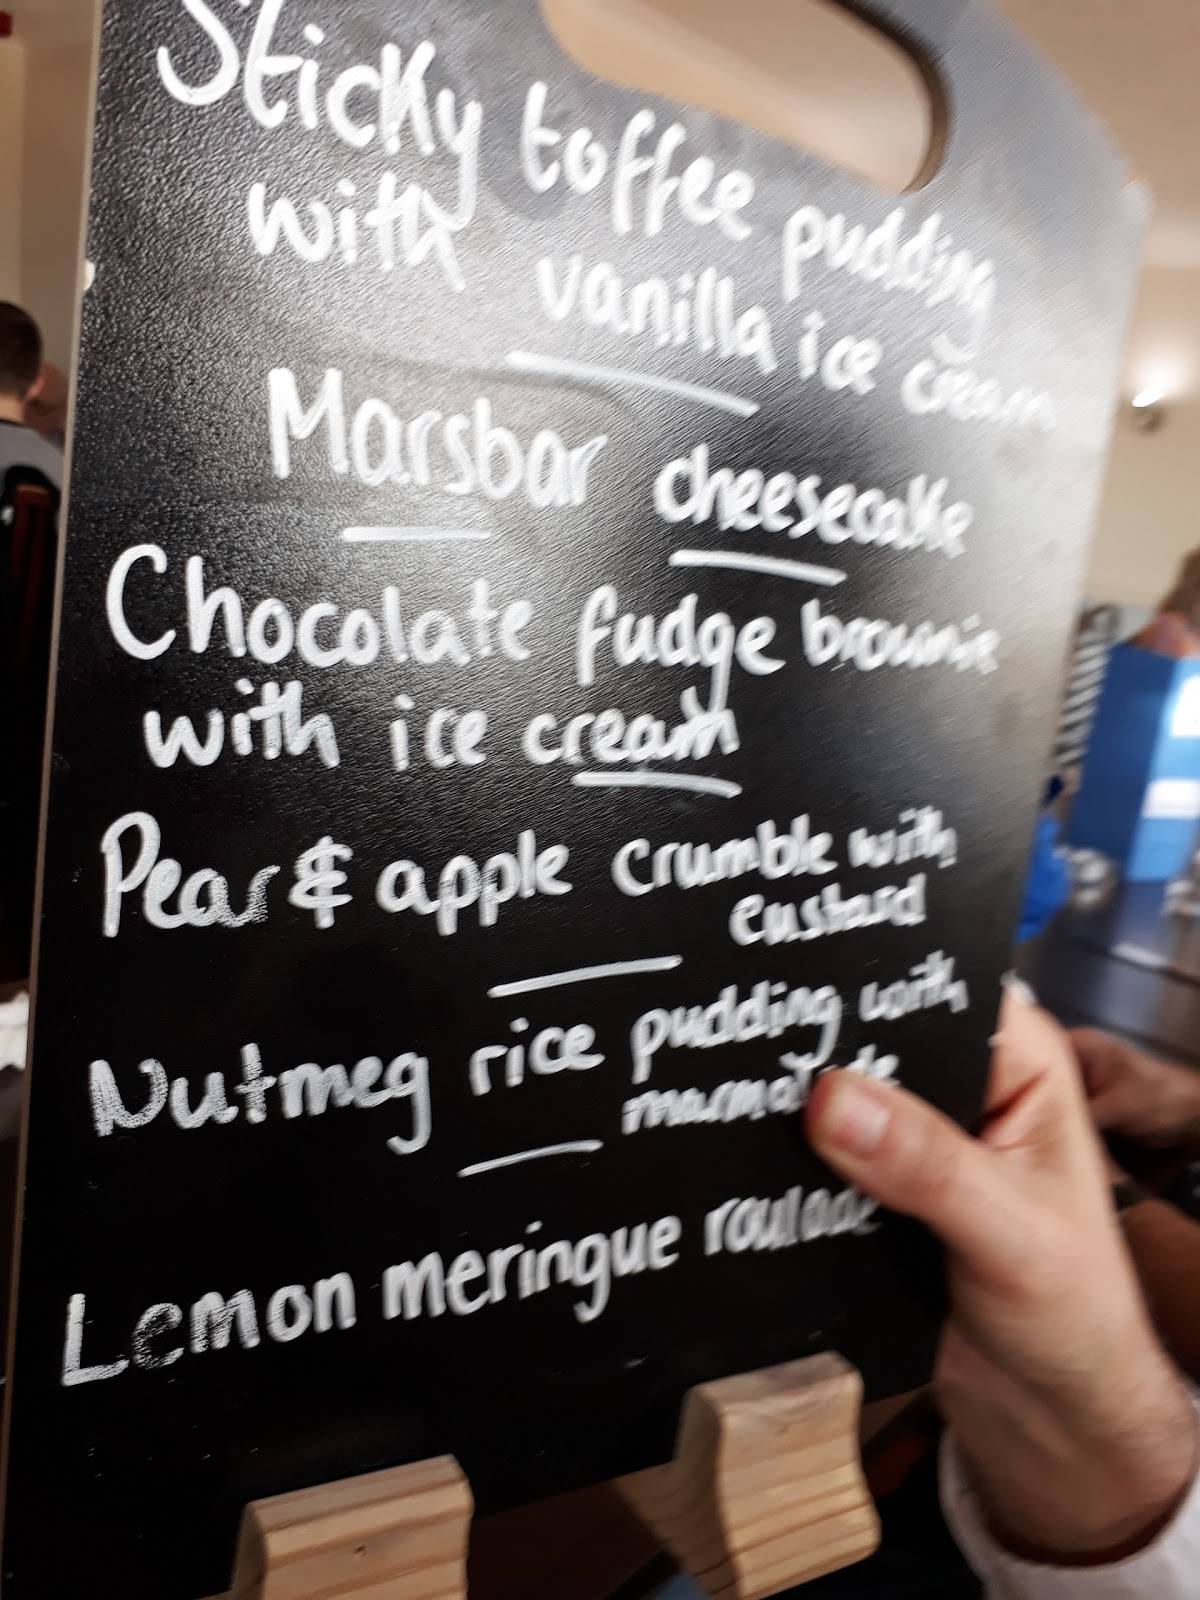 Sticky toffee pudding
with vanilla ice cream
Marsbar cheesecake
Chocolate fudge brownie
with ice cream
Pear & apple crumble with
custard
Nutmeg rice pudding with
marmalade
Lemon meringue roulade